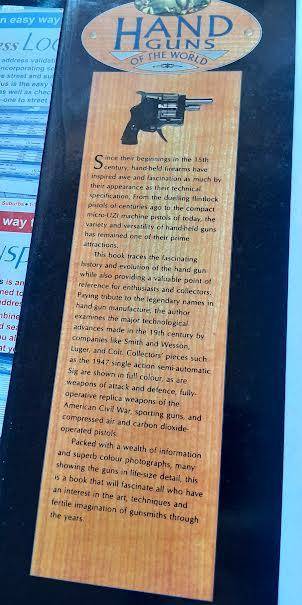 n easy way
ess Lo
address validat
ncorporating sc
e street and su
us is the easy
as well as chec
-one to street
Suburbs
way t
s is an
ned to
addre
mbine
nd sea
ou al
at yo
HAND
GUNS
OF THE WORLD
Since their beginnings in the 15th
century, hand-held firearms have
inspired awe and fascination as much by
their appearance as their technical
specification. From the duelling flintlock
pistols of centuries ago to the compact
micro-UZI machine pistols of today, the
variety and versatility of hand-held guns
has remained one of their prime
attractions.
This book traces the fascinating
history and evolution of the hand gun
while also providing a valuable point of
reference for enthusiasts and collectors.
Paying tribute to the legendary names in
hand-gun manufacture, the author
examines the major technological
advances made in the 19th century by
companies like Smith and Wesson,
Luger, and Colt. Collectors' pieces such
as the 1947 single action semi-automatic
Sig are shown in full colour, as are
weapons of attack and defence, fully-
operative replica weapons of the
American Civil War, sporting guns, and
compressed air and carbon dioxide-
operated pistols.
Packed with a wealth of information
and superb colour photographs, many
showing the guns in life-size detail, this
is a book that will fascinate all who have
an interest in the art, techniques and
fertile imagination of gunsmiths through
the years.